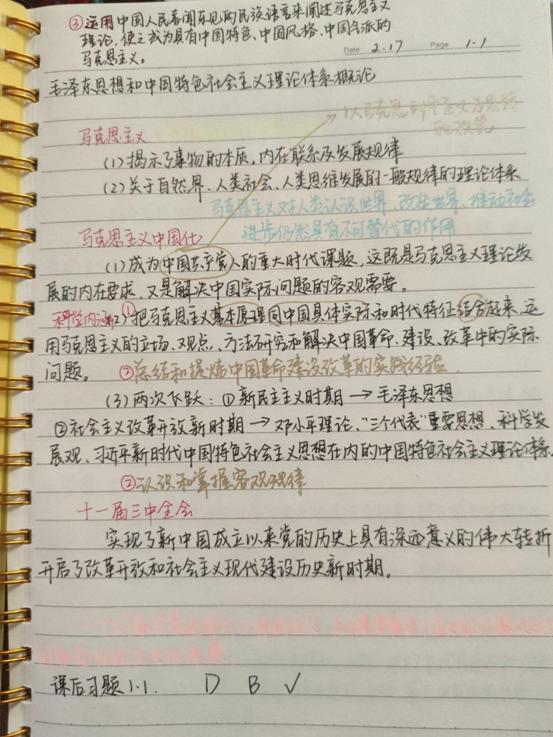 ③运用中国人民喜闻乐见的民族语言来阐述马克思主义
理论,使之成为具有中国特色、中国风格、中国气派的
马克思主义。
Date 2.17 Page 1.1
毛泽东思想和中国特色社会主义理论体系概论
马克思主义
(1)揭示了事物的本质,内在联系及发展规律
(2)关于自然界、人类社会、人类思维发展的一般规律的理论体系
马克思主义对人类认识世界、改造世界、推动社会
进步仍然具有不可替代的作用
马克思主义中国化
(1)成为中国共产党人的重大时代课题,这既是马克思主义理论发
展的内在要求,又是解决中国实际问题的客观需要。
科学内涵(2)①把马克思主义基本原理同中国具体实际和时代特征结合起来,运
用马克思主义的立场、观点、方法研究和解决中国革命、建设、改革中的实际
问题。②总结和提炼中国革命建设改革的实践经验.
(3)两次飞跃:①新民主主义时期→毛泽东思想
②社会主义改革开放新时期→邓小平理论、“三个代表”重要思想、科学发
展观、习近平新时代中国特色社会主义思想在内的中国特色社会主义理论体系.
②认识和掌握客观规律
十一届三中全会
实现了新中国成立以来党的历史上具有深远意义的伟大转折
开启了改革开放和社会主义现代建设历史新时期。
课后习题1.1. D B √